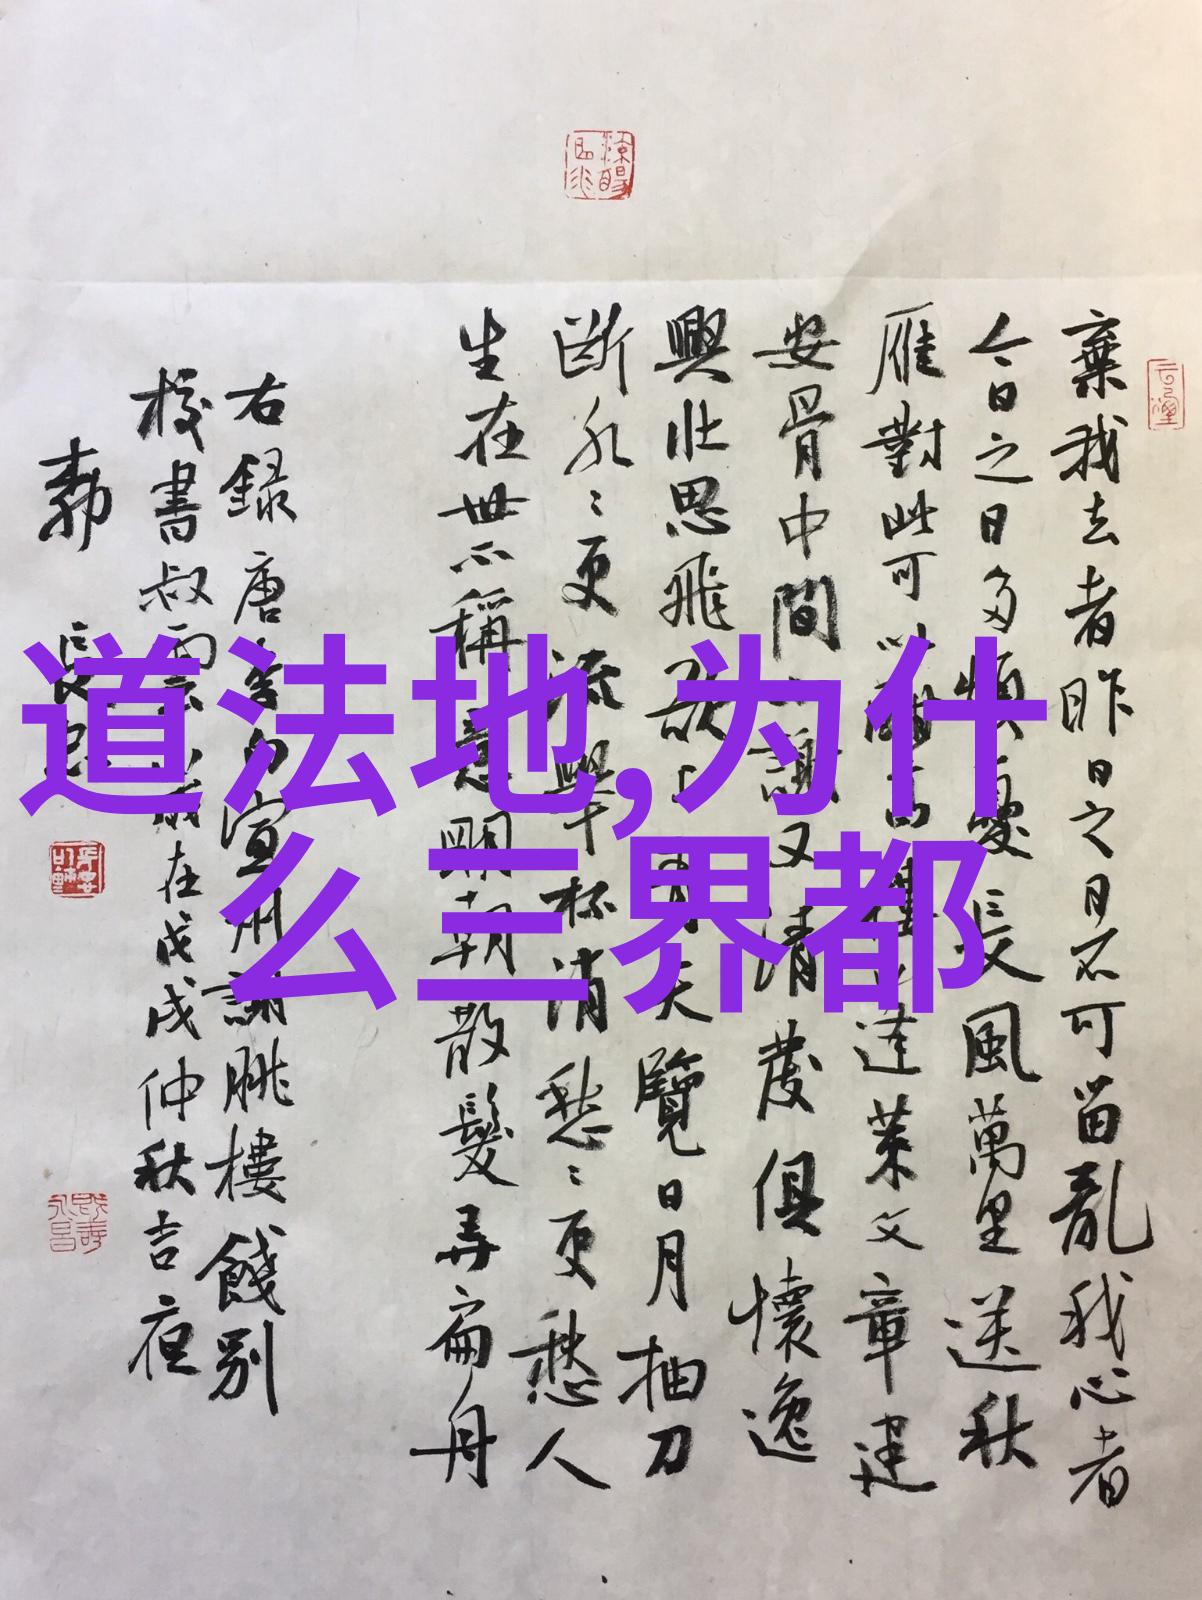 道法地,为什
么三界都
棄我去者昨日之日不可留亂我心者
今日之日多煩憂長風萬里送秋
雁對此可以酣高樓蓬萊文章建
安骨中間小謝又清發俱懷逸
興壯思飛欲上青天覽日月抽刀
斷水〻更流舉杯消愁〻更愁人
生在世不稱意明朝散髮弄扁舟
右錄唐李白宣州謝朓樓餞別
校書叔雲歲在戊戌仲秋吉夜